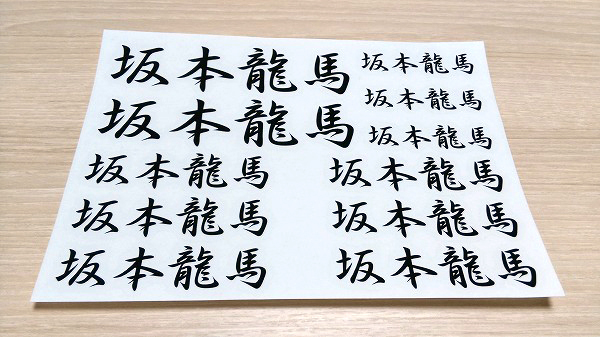 坂本龍馬
坂本龍馬
坂本龍馬
坂本龍馬
坂本龍馬
坂本龍馬
坂本龍馬
坂本龍馬
坂本龍馬
坂本龍馬
坂本龍馬